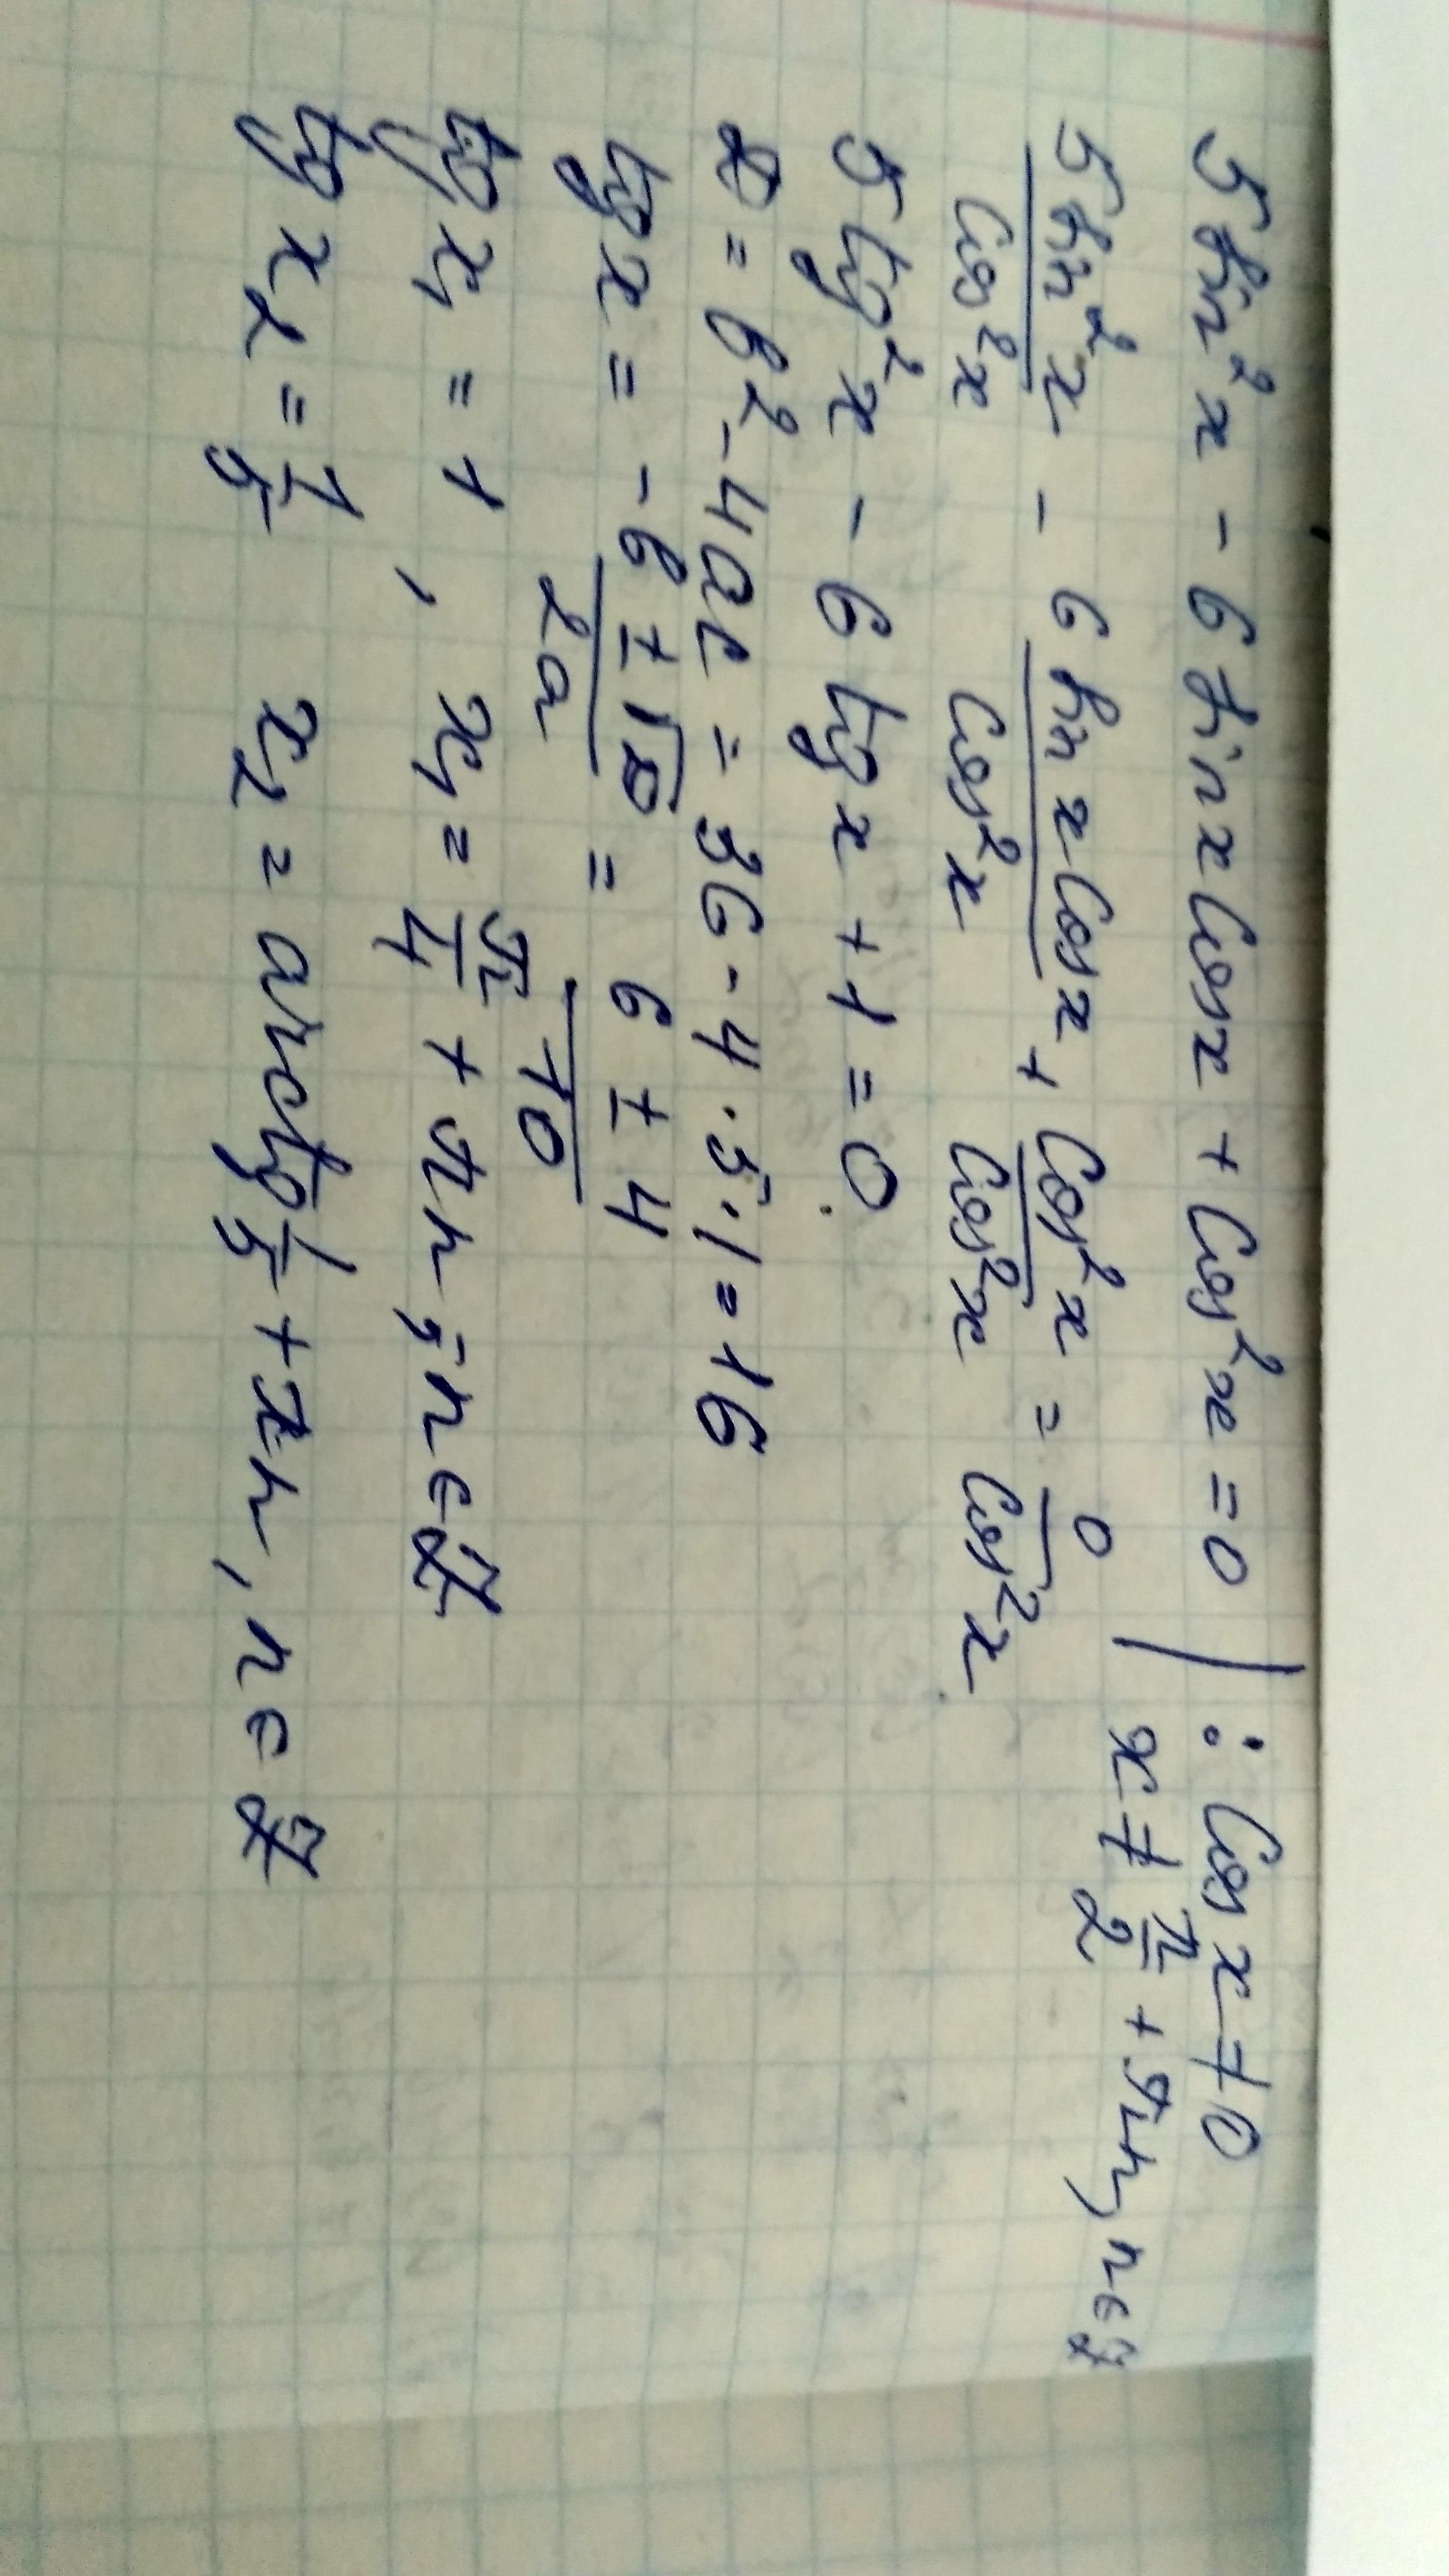 5 sin²x - 6 sin x cos x + cos²x = 0 | : cos x ≠ 0
x ≠ π/2 + πn, n ∈ Z
5 sin²x / cos²x - 6 sin x cos x / cos²x + cos²x / cos²x = 0 / cos²x
5 tg²x - 6 tg x + 1 = 0
D = b² - 4ac = 36 - 4 · 5 · 1 = 16
tg x = -b ± √D / 2a = 6 ± 4 / 10
tg x₁ = 1, x₁ = π/4 + πn, n ∈ Z
tg x₂ = 1/5 x₂ = arctg 1/5 + πn, n ∈ Z